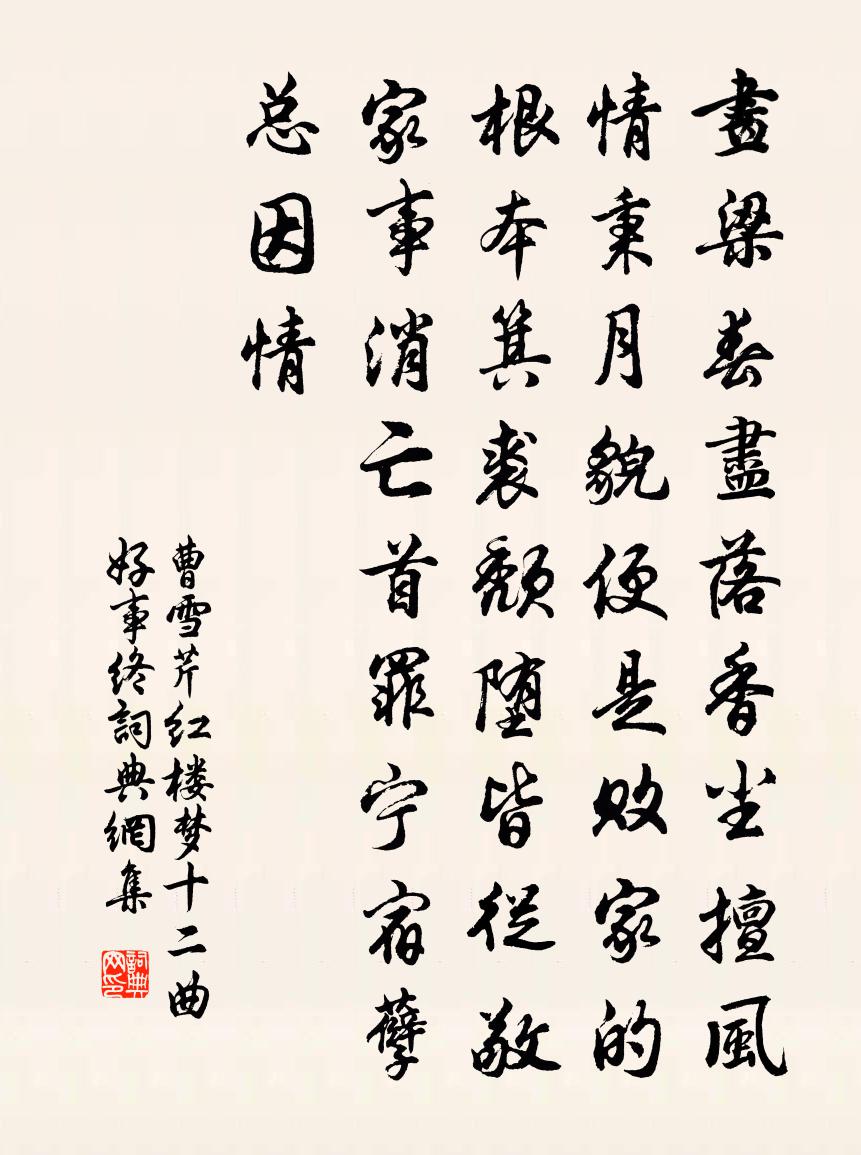 畫梁春盡落香尘擅風
情秉月貌便是败家的
根本箕裘颓堕皆從敬
家事消亡首罪宁宿孽
总因情
曹雪芹红楼梦十二曲
好事终詞典網集
詞典
网印